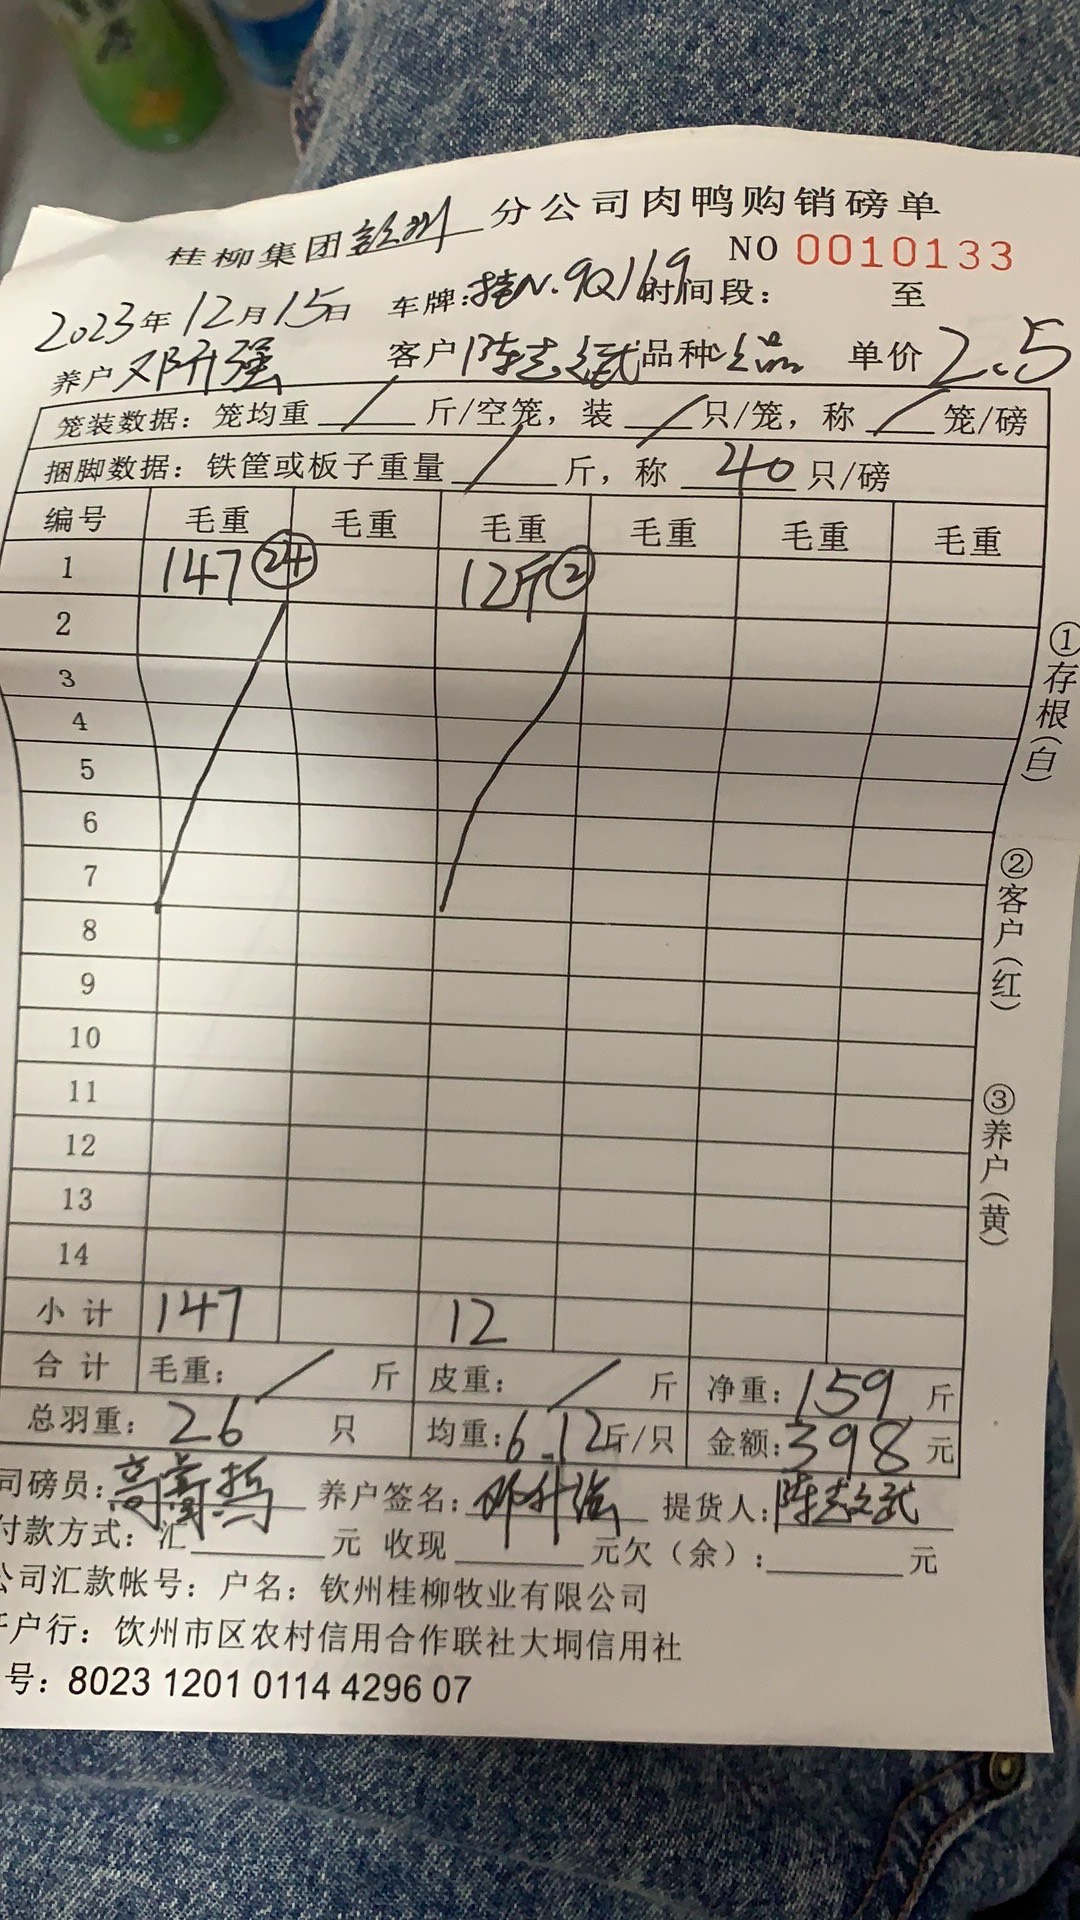 桂柳集团钦州分公司肉鸭购销磅单
NO 0010133
2023年12月15日 车牌:桂N.9Q169 时间段: 至
养户 邓升强 客户 陈志武 品种 次品 单价 2.5
笼装数据: 笼均重 / 斤/空笼, 装 / 只/笼, 称 / 笼/磅
捆脚数据: 铁筐或板子重量 / 斤, 称 40 只/磅
编号 毛重 毛重 毛重 毛重 毛重 毛重
1 147 24 12斤 2
2
3
4
5
6
7
8
9
10
11
12
13
14
小计 147 12
合计 毛重: / 斤 皮重: / 斤 净重: 159 斤
总羽重: 26 只 均重: 6.12 斤/只 金额: 398 元
司磅员: 养户签名: 邓升强 提货人: 陈志武
付款方式: 汇 元 收现 元欠(余): 元
公司汇款帐号: 户名: 钦州桂柳牧业有限公司
开户行: 钦州市区农村信用合作联社大垌信用社
号: 8023 1201 0114 4296 07
①存根(白)
②客户(红)
③养户(黄)